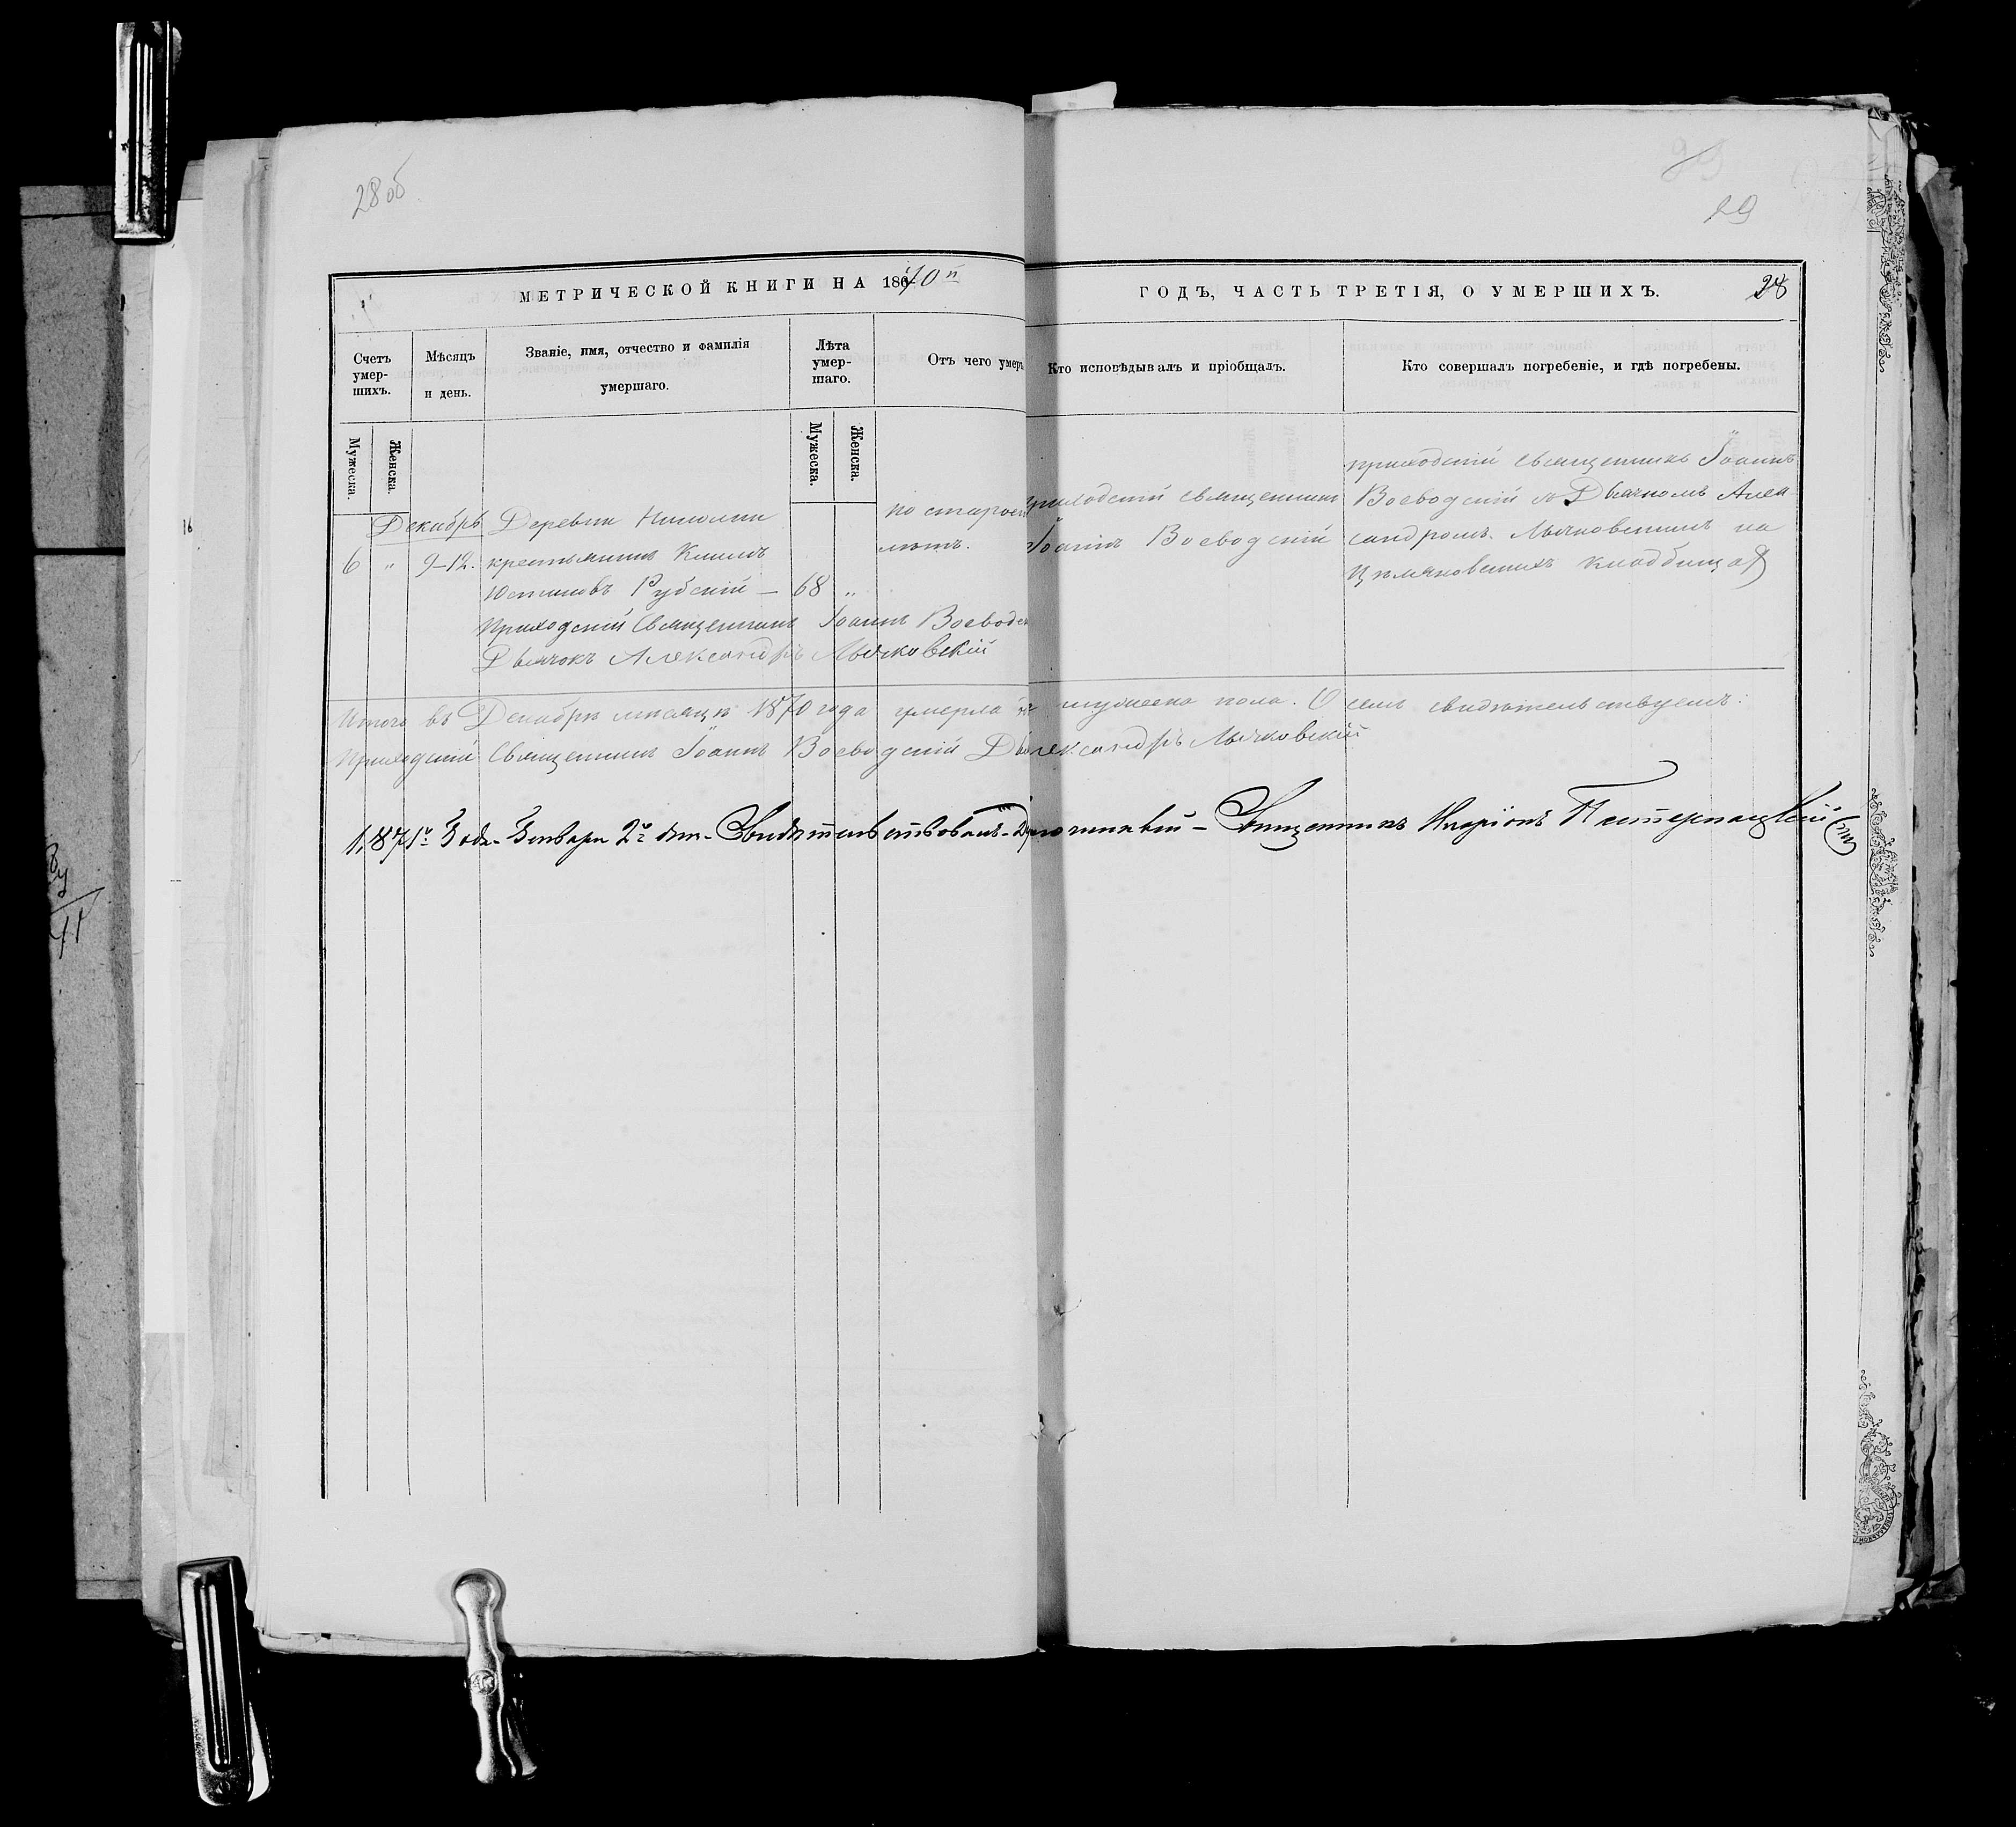 28 об
29
МЕТРИЧЕСКОЙ КНИГИ НА 1870й ГОДЪ, ЧАСТЬ ТРЕТІЯ, О УМЕРШИХЪ.
28
Счетъ умер-
шихъ.
Мѣсяцъ
и день.
Званіе, имя, отчество и фамилія
умершаго.
Лѣта
умер-
шаго.
Отъ чего умеръ
Кто исповѣдывалъ и пріобщалъ.
Кто совершалъ погребеніе, и гдѣ погребены.
Мужеска.
Женска.
Мужеска.
Женска.
Декабрь
6 " 9-12.
Деревни
крестьянинъ Климъ
Юстиновъ Рубскій — 68 "
Приходскій Священникъ Іоаннъ Воеводс
Дьячокъ Александръ Лычковскій
по старос
лѣтъ.
приходскій священникъ
Іоаннъ Воеводскій
приходскій священникъ Іоаннъ
Воеводскій съ Дьячкомъ Алек
сандромъ Лычковскимъ на
кладбищахъ
Итого въ Декабрѣ мѣсяцѣ 1870 года умерло мужеска пола. О семъ свидѣтельствуемъ:
Приходскій Священникъ Іоаннъ Воеводскій Александръ Лычковскій
1871го Года Января 2го дня Свидѣтельствовалъ Священникъ Иларіонъ
16